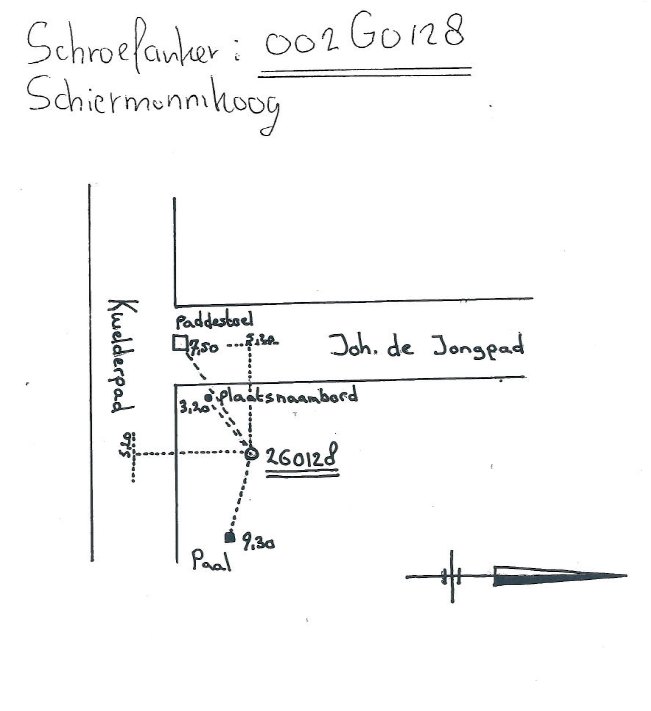 Schroefanker: 002G0128
Schiermonnikoog
Paddestoel
7,50
5,30
Joh. de Jongpad
Kwelderpad
plaatsnaambord
3,20
2G0128
9,30
Paal